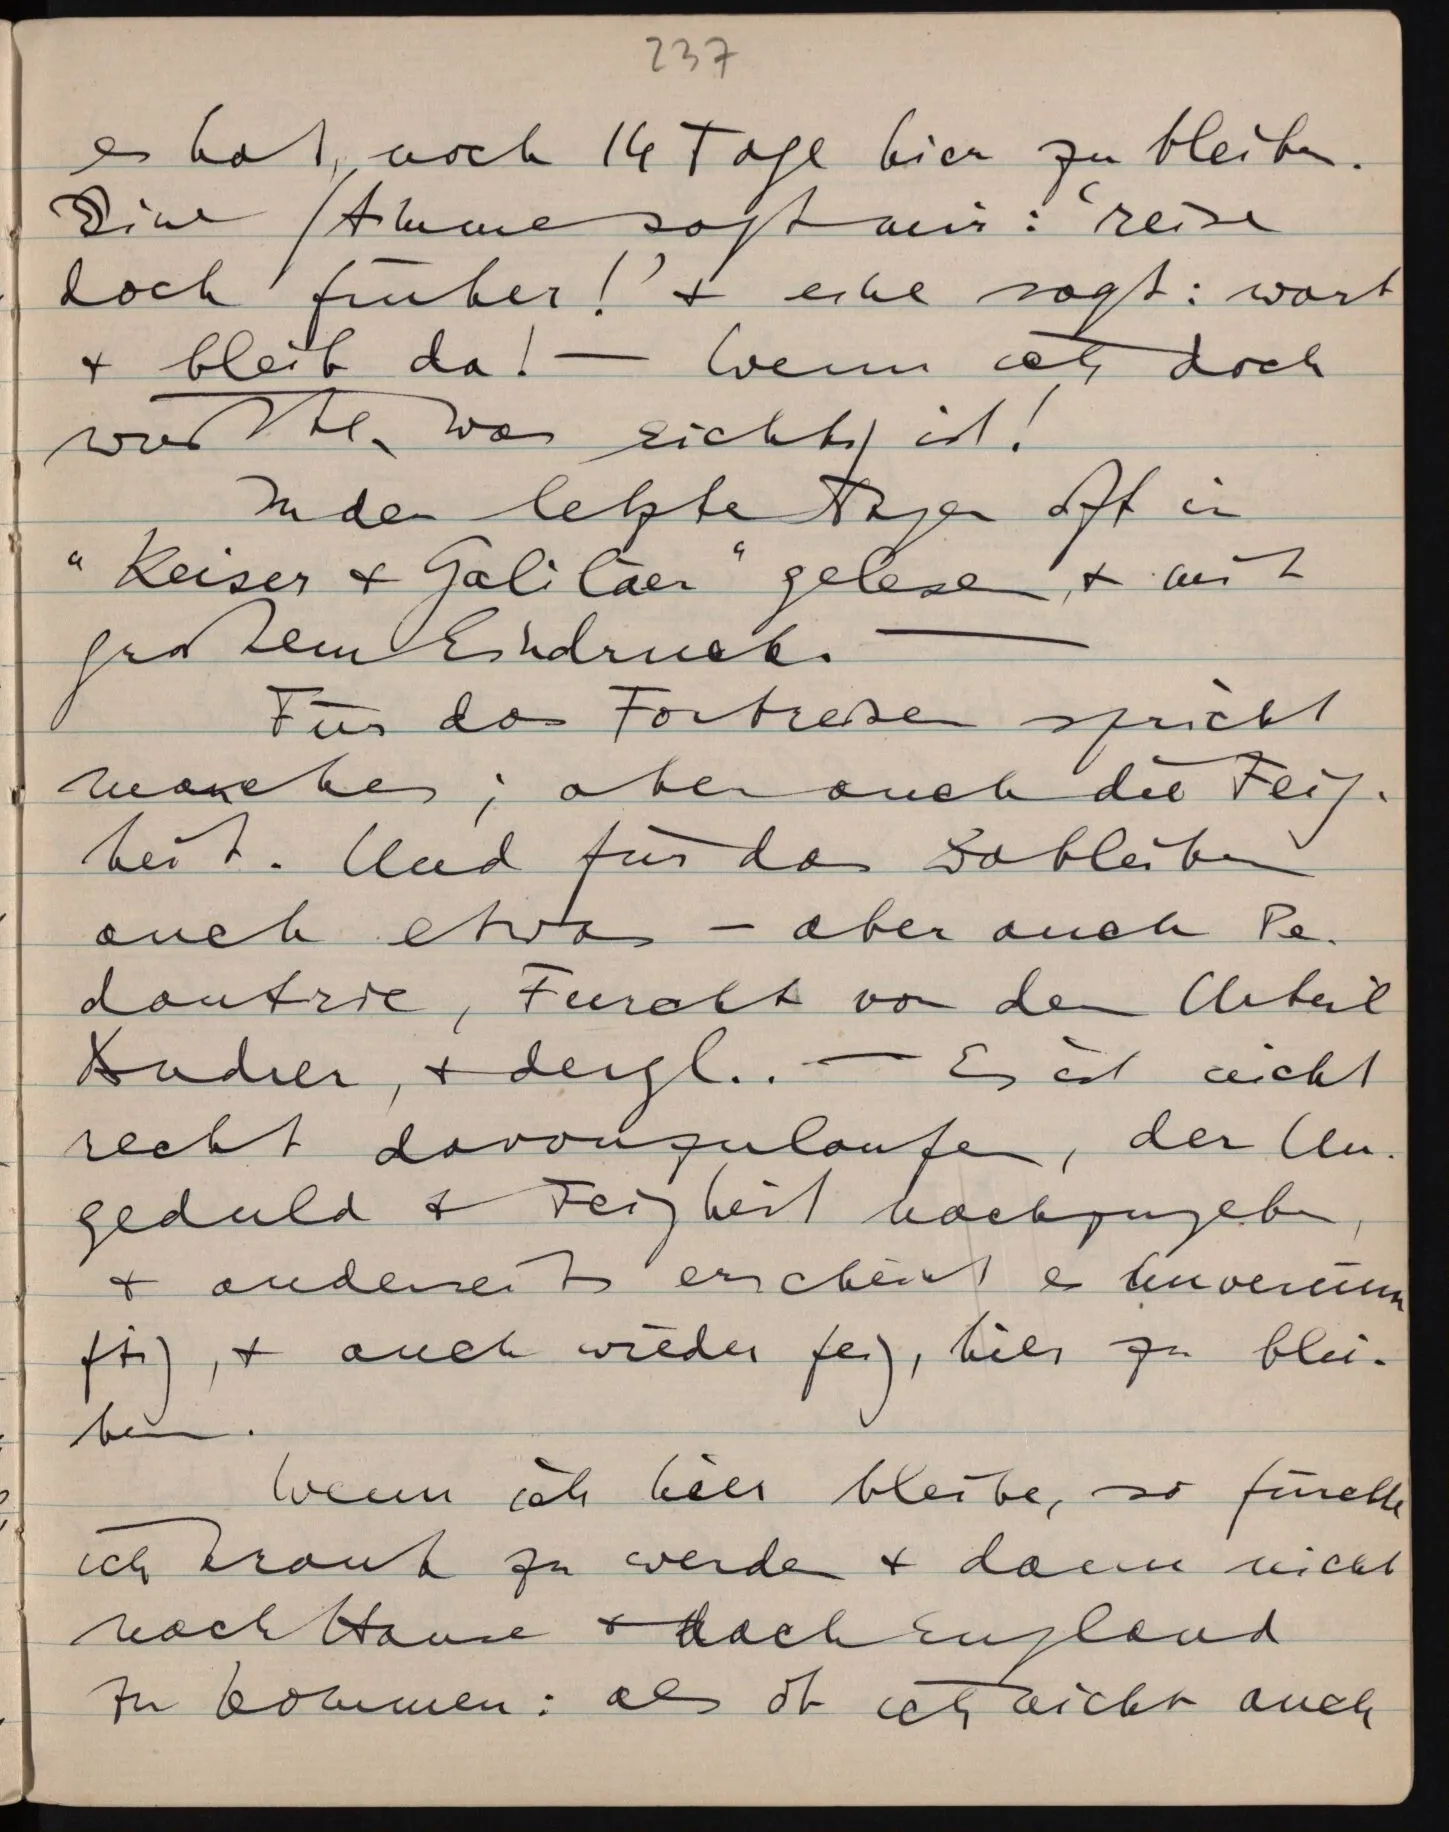 237
es hat, noch 14 Tage hier zu bleiben.
Eine Stimme sagt mir: ‘reise
doch früher!’ + eine sagt: wart
+ bleib da! — Wenn ich doch
wüßte, was richtig ist!
In den letzten Tagen oft in
“Keiser + Galiläer“ gelesen, + mit
großem Eindruck. —
Für das Fortreisen spricht
manches; aber auch die Feig-
heit. Und für das Dableiben
auch etwas – aber auch Pe-
danterie, Furcht vor dem Urteil
Andrer, + dergl.. — Es ist nicht
recht davonzulaufen, der Un-
geduld + Feigheit nachzugeben,
+ anderseits erscheint es unvernün
ftig, + auch wieder feig, hier zu blei-
ben.
Wenn ich hier bleibe, so fürchte
ich krank zu werden + dann nicht
nach Hause + nach England
zu kommen: als ob ich nicht auch